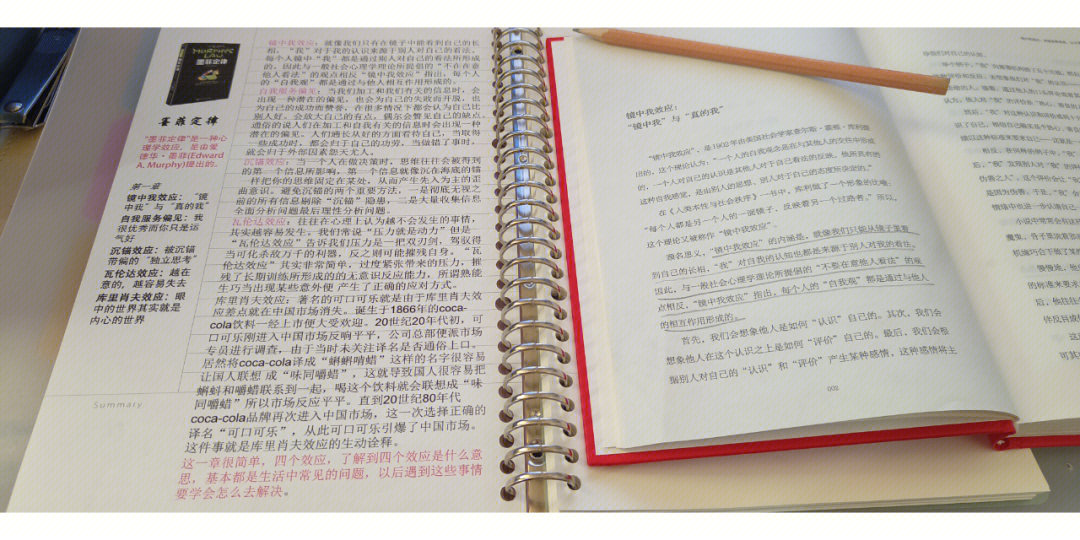 墨菲定律
墨菲定律
"墨菲定律"是一种心
理学效应,是由爱
德华·墨菲(Edward
A. Murphy)提出的。
第一章
镜中我效应:"镜
中我"与"真的我"
自我服务偏见:我
很优秀而你只是运
气好
沉锚效应:被沉锚
带偏的"独立思考"
瓦伦达效应:越在
意的,越容易失去
库里肖夫效应:眼
中的世界其实就是
内心的世界
Summary
镜中我效应:就像我们只有在镜子中能看到自己的长
相,"我"对于我的认识来源于别人对自己的看法。
每个人镜中"我"都是通过别人对自己的看法所形成
的,因此与一般社会心理学理论所提倡的"不在在意
他人看法"的观点相反"镜中我效应"指出,每个人
的"自我观"都是通过与他人相互作用形成的。
自我服务偏见:当我们加工和我们有关的信息时,会
出现一种潜在的偏见,也会为自己的失败而开脱,也
为自己的成功而赞誉,在很多情况下都会认为自己比
别人好。会放大自己的有点,偶尔会瞥见自己的缺点
通俗的说人们在加工和自我有关的信息时会出现一种
潜在的偏见。人们通长从好的方面看待自己,当取得
一些成功时,都会归于自己的功劳。当做错了事时,
就会归于外部因素怨天尤人。
沉锚效应:当一个人在做决策时,思维往往会被得到
的第一个信息所影响,第一个信息就像沉在海底的锚
一样把你的思维固定在某处,从而产生先入为主的歪
曲意识。避免沉锚的两个重要方法,一是彻底无视之
前的所有信息剔除"沉锚"隐患,二是大量收集信息
全面分析问题最后理性分析问题。
瓦伦达效应:往往在心理上认为越不会发生的事情,
其实越容易发生。我们常说"压力就是动力"但是
"瓦伦达效应"告诉我们压力是一把双刃剑,驾驭得
当可化杀敌万千的利器,反之则可能摧残自身。"瓦
伦达效应"其实非常简单,过度紧张带来的压力,摧
残了长期训练所形成的的无意识反应能力,所谓熟能
生巧当出现某些意外便 产生了正确的应对方式。
库里肖夫效应:著名的可口可乐就是由于库里肖夫效
应差点就在中国市场消失。诞生于1866年的coca-
cola饮料一经上市便大受欢迎。20世纪20年代初,可
口可乐刚进入中国市场反响平平,公司总部便派市场
专员进行调查,由于当时未关注译名是否通俗上口。
居然将coca-cola译成"蝌蝌啃蜡"这样的名字很容易
让国人联想 成"味同嚼蜡",这就导致国人很容易把
蝌蚪和嚼蜡联系到一起,喝这个饮料就会联想成"味
同嚼蜡"所以市场反应平平。直到20世纪80年代
coca-cola品牌再次进入中国市场,这一次选择正确的
译名"可口可乐",从此可口可乐引爆了中国市场。
这件事就是库里肖夫效应的生动诠释。
这一章很简单,四个效应,了解到四个效应是什么意
思,基本都是生活中常见的问题,以后遇到这些事情
要学会怎么去解决。
镜中我效应:
"镜中我"与"真的我"
"镜中我效应",是1902年由美国社会学家查尔斯·霍顿·库利提
出的。这个理论认为,"一个人的自我观念是在与其他人的交往中形成
的,一个人对自己的认识是其他人对于自己看法的反映。他所具有的
这种自我感觉,是由别人的思想、别人对于自己的态度所决定的。"
在《人类本性与社会秩序》一书中,库利做了一个形象的比喻,
"每个人都是另一个人的一面镜子,反映着另一个过路者。"所以,
这个理论又被称作"镜中我效应"。
顾名思义,"镜中我效应"的内涵是,就像我们只能从镜子里看
到自己的长相,"我"对自我的认知也都是来源于别人对我的看法。
因此,与一般社会心理学理论所提倡的"不要在意他人看法"的观
点相反,"镜中我效应"指出,每个人的"自我观"都是通过与他人
的相互作用形成的。
首先,我们会想象他人是如何"认识"自己的。其次,我们会
想象他人在这个认识之上是如何"评价"自己的。最后,我们会根
据别人对自己的"认识"和"评价"产生某种感情,这种感情将主
002